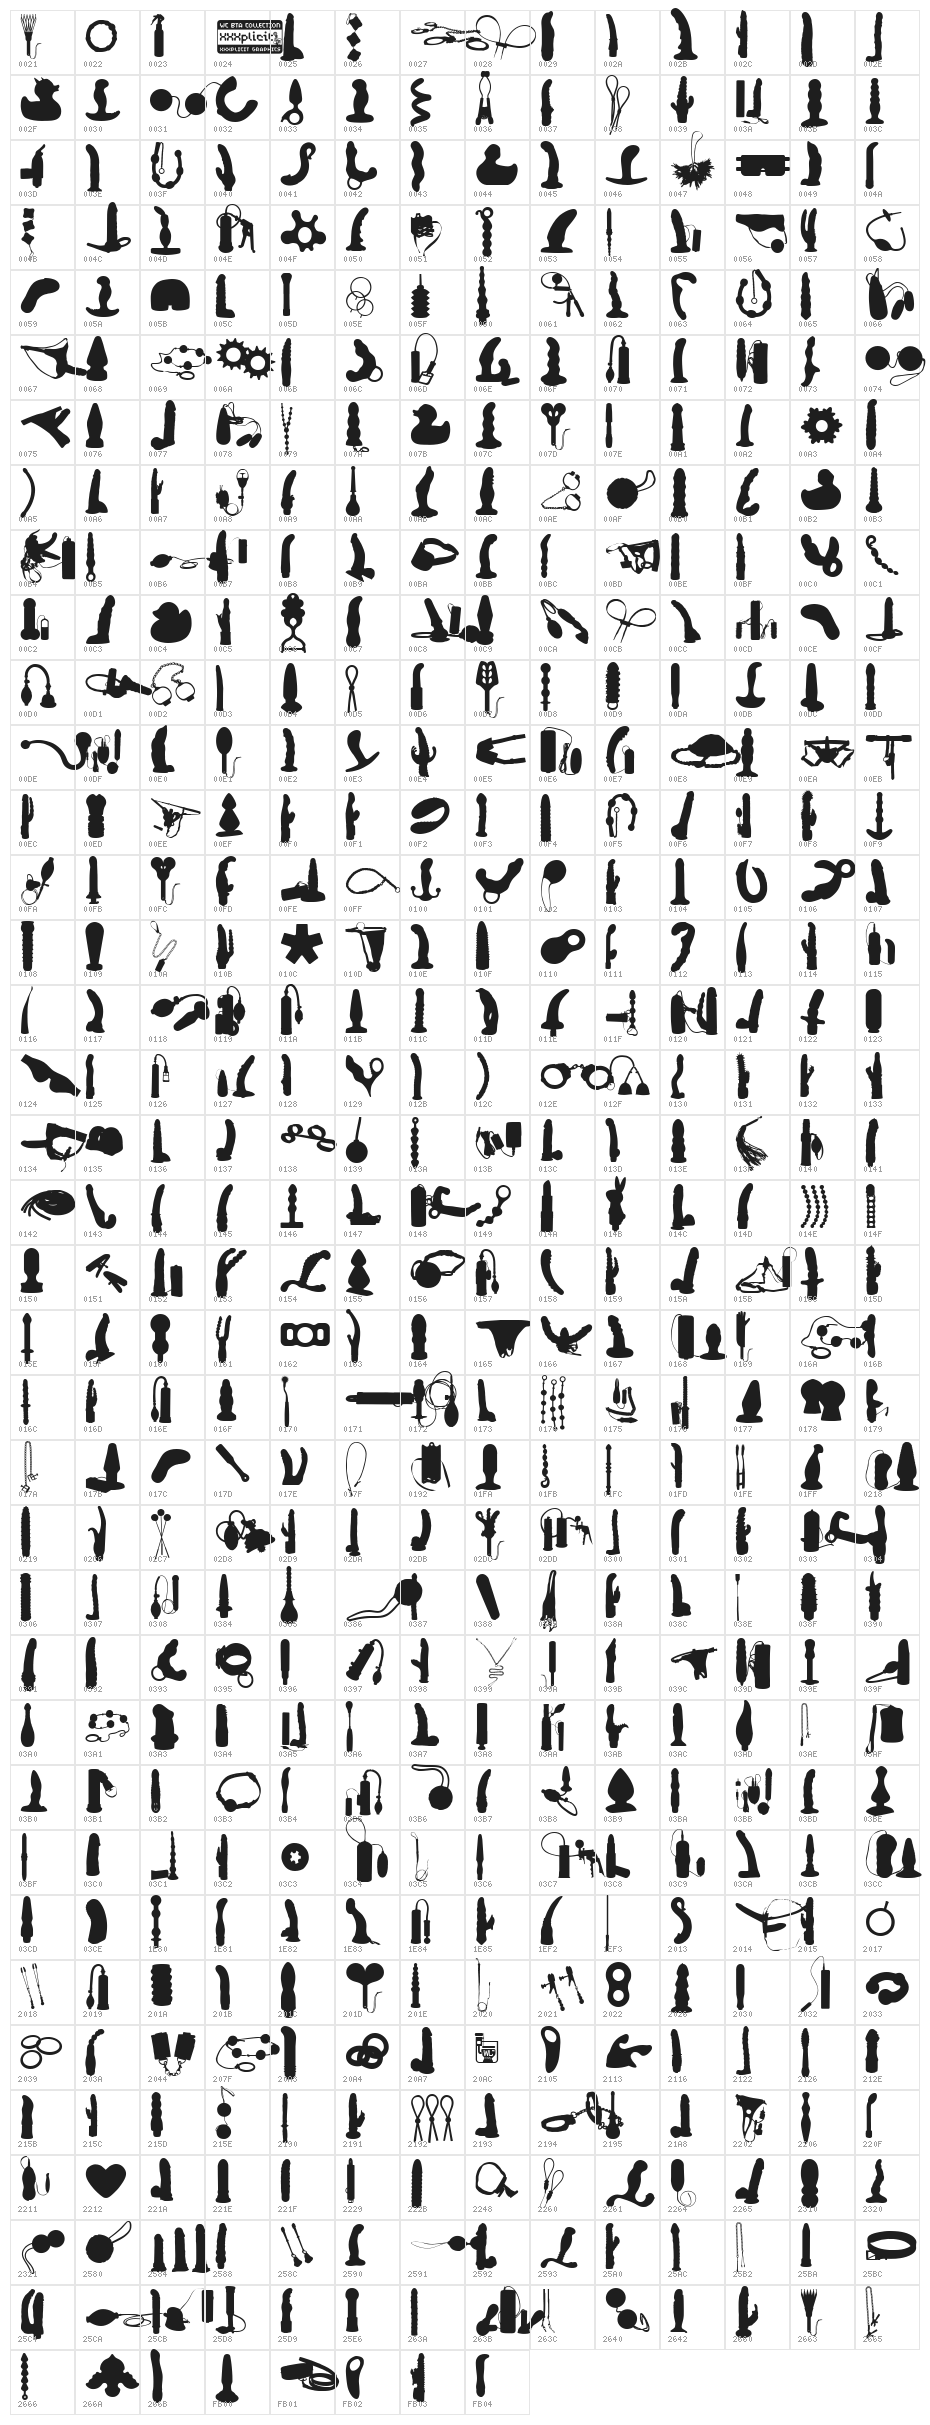 WC BTA COLLECTION
xxxplicit
XXXPLICIT GRAPHICS
0021 0022 0023 0024 0025 0026 0027 0028 0029 002A 002B 002C 002D 002E
002F 0030 0031 0032 0033 0034 0035 0036 0037 0038 0039 003A 003B 003C
003D 003E 003F 0040 0041 0042 0043 0044 0045 0046 0047 0048 0049 004A
004B 004C 004D 004E 004F 0050 0051 0052 0053 0054 0055 0056 0057 0058
0059 005A 005B 005C 005D 005E 005F 0060 0061 0062 0063 0064 0065 0066
0067 0068 0069 006A 006B 006C 006D 006E 006F 0070 0071 0072 0073 0074
0075 0076 0077 0078 0079 007A 007B 007C 007D 007E 00A1 00A2 00A3 00A4
00A5 00A6 00A7 00A8 00A9 00AA 00AB 00AC 00AE 00AF 00B0 00B1 00B2 00B3
00B4 00B5 00B6 00B7 00B8 00B9 00BA 00BB 00BC 00BD 00BE 00BF 00C0 00C1
00C2 00C3 00C4 00C5 00C6 00C7 00C8 00C9 00CA 00CB 00CC 00CD 00CE 00CF
00D0 00D1 00D2 00D3 00D4 00D5 00D6 00D7 00D8 00D9 00DA 00DB 00DC 00DD
00DE 00DF 00E0 00E1 00E2 00E3 00E4 00E5 00E6 00E7 00E8 00E9 00EA 00EB
00EC 00ED 00EE 00EF 00F0 00F1 00F2 00F3 00F4 00F5 00F6 00F7 00F8 00F9
00FA 00FB 00FC 00FD 00FE 00FF 0100 0101 0102 0103 0104 0105 0106 0107
0108 0109 010A 010B 010C 010D 010E 010F 0110 0111 0112 0113 0114 0115
0116 0117 0118 0119 011A 011B 011C 011D 011E 011F 0120 0121 0122 0123
0124 0125 0126 0127 0128 0129 012B 012C 012E 012F 0130 0131 0132 0133
0134 0135 0136 0137 0138 0139 013A 013B 013C 013D 013E 013F 0140 0141
0142 0143 0144 0145 0146 0147 0148 0149 014A 014B 014C 014D 014E 014F
0150 0151 0152 0153 0154 0155 0156 0157 0158 0159 015A 015B 015C 015D
015E 015F 0160 0161 0162 0163 0164 0165 0166 0167 0168 0169 016A 016B
016C 016D 016E 016F 0170 0171 0172 0173 0174 0175 0176 0177 0178 0179
017A 017B 017C 017D 017E 017F 0192 01FA 01FB 01FC 01FD 01FE 01FF 0218
0219 02C6 02C7 02D8 02D9 02DA 02DB 02DC 02DD 0300 0301 0302 0303 0304
0306 0307 0308 0384 0385 0386 0387 0388 0389 038A 038C 038E 038F 0390
0391 0392 0393 0395 0396 0397 0398 0399 039A 039B 039C 039D 039E 039F
03A0 03A1 03A3 03A4 03A5 03A6 03A7 03A8 03AA 03AB 03AC 03AD 03AE 03AF
03B0 03B1 03B2 03B3 03B4 03B5 03B6 03B7 03B8 03B9 03BA 03BB 03BD 03BE
03BF 03C0 03C1 03C2 03C3 03C4 03C5 03C6 03C7 03C8 03C9 03CA 03CB 03CC
03CD 03CE 1E80 1E81 1E82 1E83 1E84 1E85 1EF2 1EF3 2013 2014 2015 2017
2018 2019 201A 201B 201C 201D 201E 2020 2021 2022 2026 2030 2032 2033
2039 203A 2044 207F 20A3 20A4 20A7 20AC 2105 2113 2116 2122 2126 212E
215B 215C 215D 215E 2190 2191 2192 2193 2194 2195 21A8 2202 2206 220F
2211 2212 221A 221E 221F 2229 222B 2248 2260 2261 2264 2265 2310 2320
2321 2580 2584 2588 258C 2590 2591 2592 2593 25A0 25AC 25B2 25BA 25BC
25C4 25CA 25CB 25D8 25D9 25E6 263A 263B 263C 2640 2642 2660 2663 2665
2666 266A 266B FB00 FB01 FB02 FB03 FB04